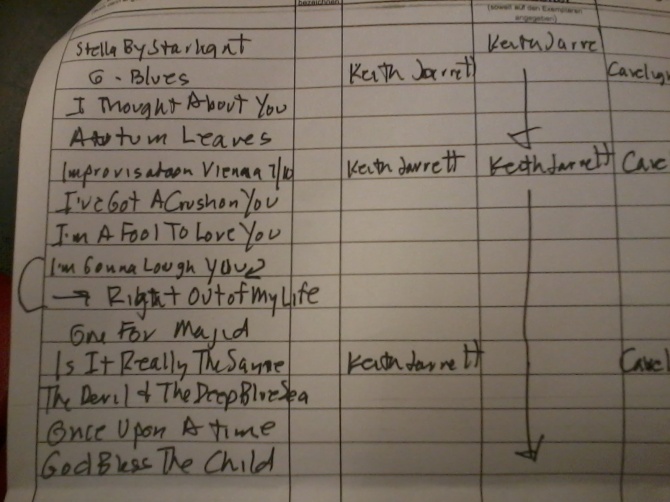 bezeichnen
(soweit auf den Exemplaren
angegeben)
Stella By Starhgnt Keith Jarre
G - Blues Keith Jarrett
I Thought About You
Autum Leaves
Improvisataon Vienna 7/10 Keith Jarrett Keith Jarrett Cave
I've Got A Crush on You
I'm A Fool To Love You
I'm Gonna Lough You
→ Right Out of My Life
One For Majid
Is It Really The Same Keith Jarrett
The Devil & The Deep Blue Sea
Once Upon A time
God Bless The Child